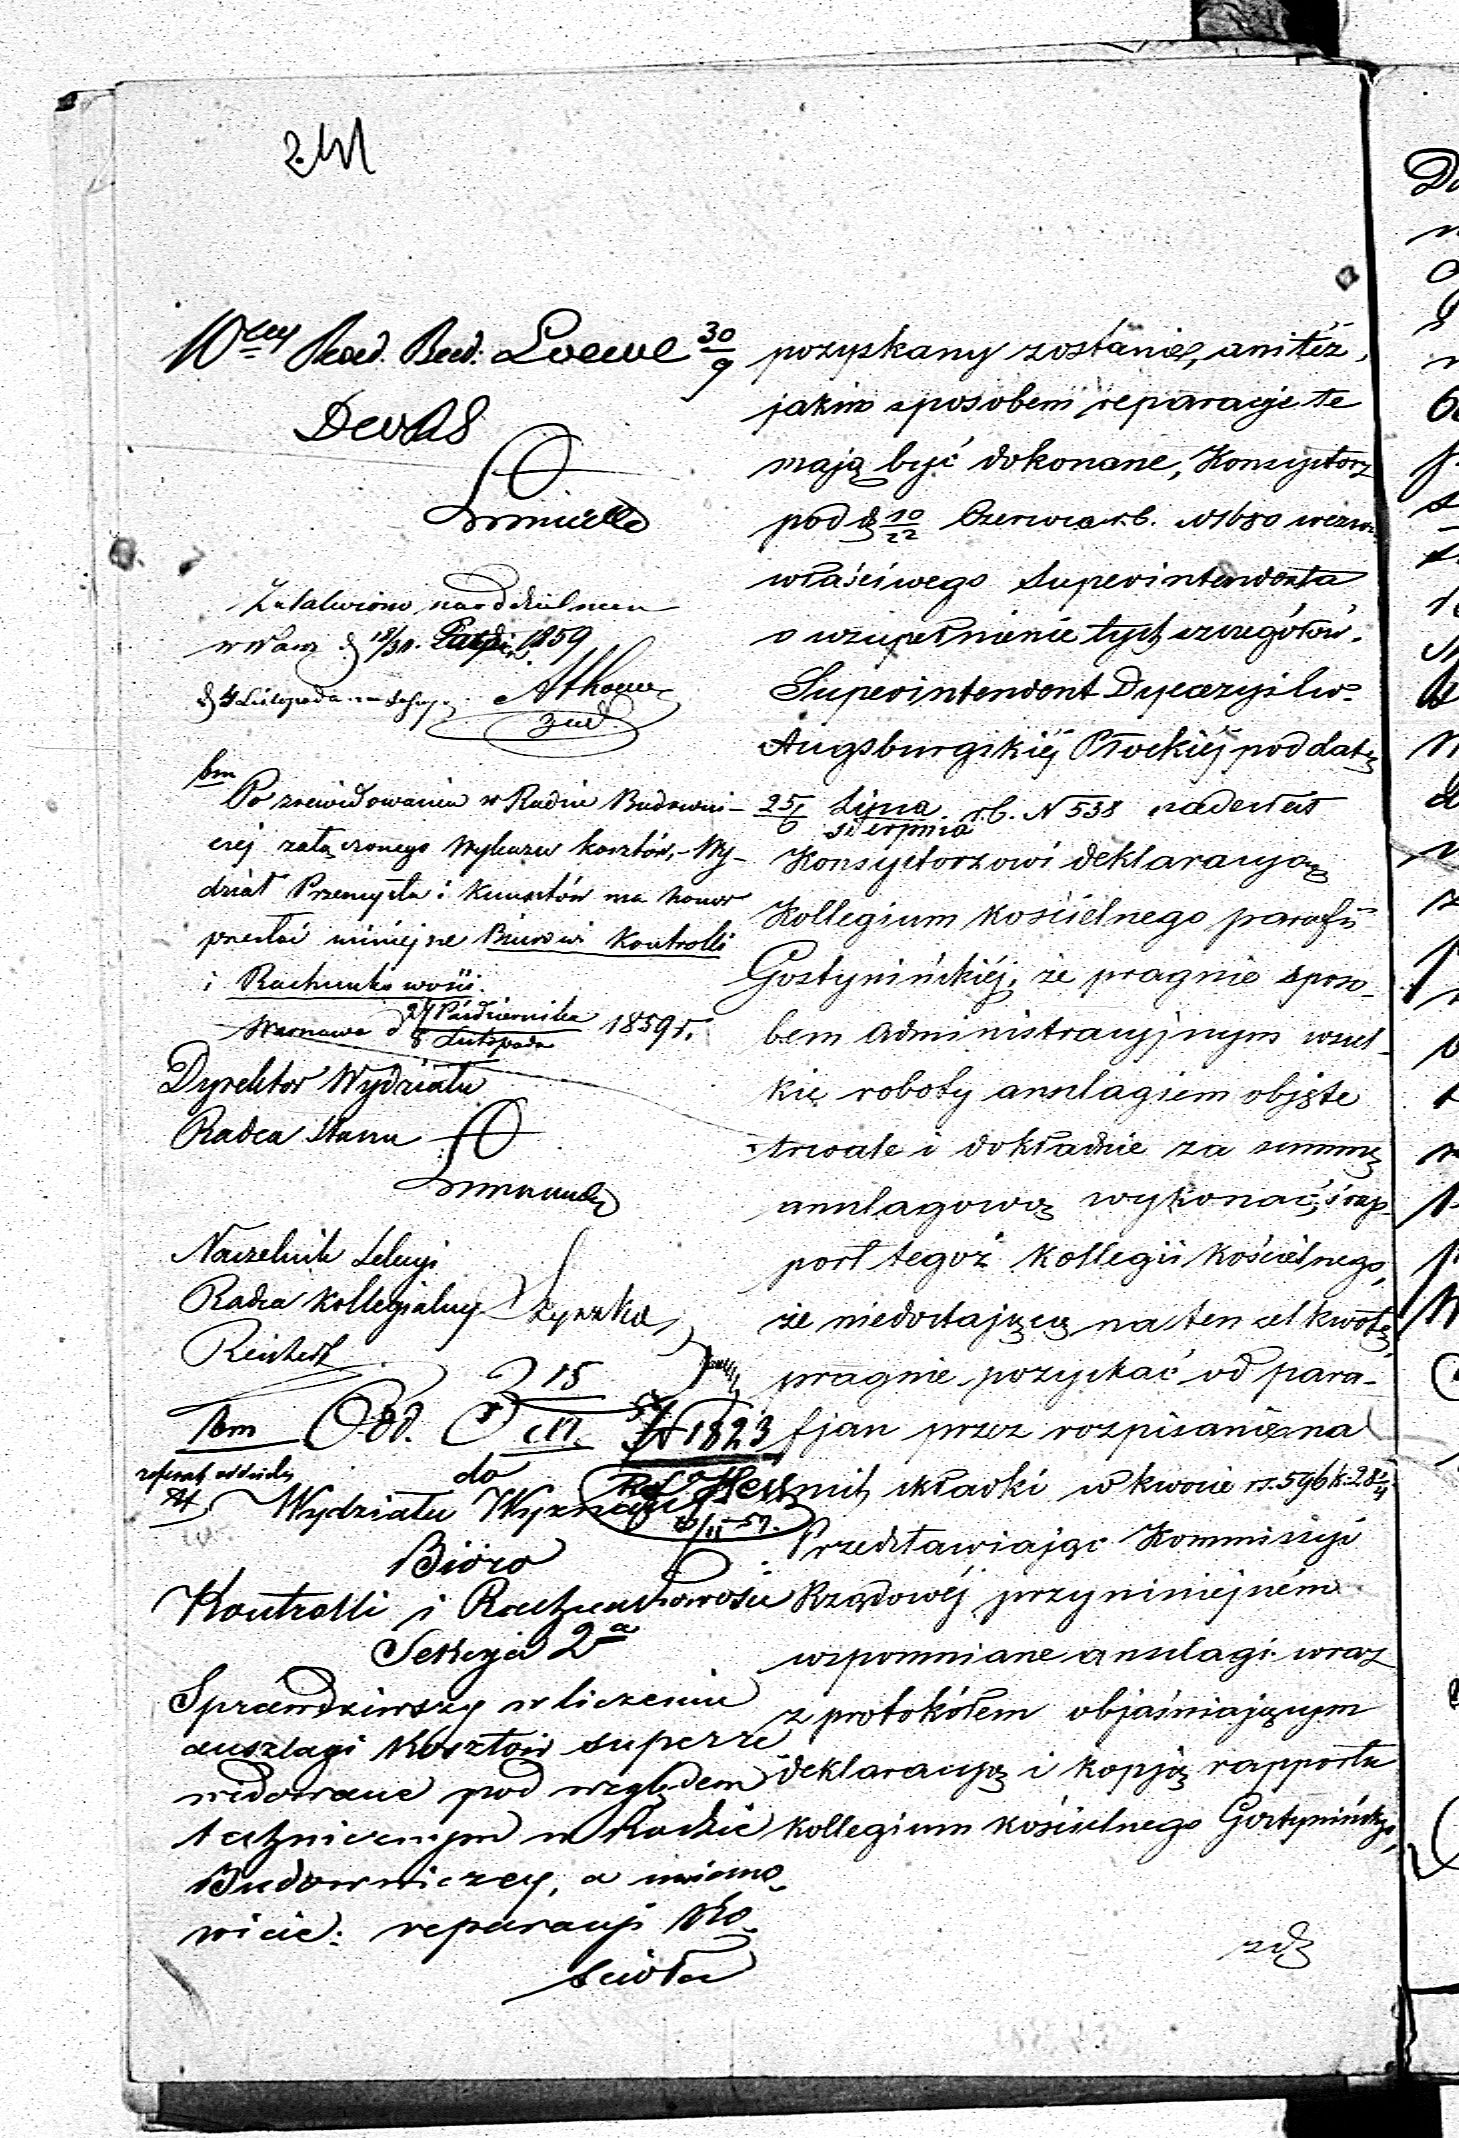 241
Wny Rad. Bud. Loewe 30/9
Załatwiono na oddzielnem
w Warsz. d 18/30 Paźdz. 1859
d 4 Listopada
zad.
bm
Po zrewidowaniu w Radzie Budowni-
czej załączonego Wykazu kosztów, - Wy-
dział Przemysłu i Kunsztów ma honor
przesłać niniejsze Biurowi Kontrolli
i Rachunkowości.
Warszawa d 27 Października / 8 Listopada 1859 r.
Dyrektor Wydziału
Radca Stanu
Naczelnik Sekcyi
Radca Kollegialny
bm Odd. 15 N 1823
do
Wydziału Wyznań
Bióro
Kontrolli i Rachunkowości
Sekcyia 2a
Sprawdziwszy w liczeniu
anszlagi Kosztów superre
widowane pod względem
technicznym w Radzie
Budowniczey, a miano-
wicie: reparacyi Ko-
scioła
pozyskany zostanie, ani też,
jakim sposobem reparacyje te
mają być dokonane, Konsystorz
pod d 10/22 Czerwca r.b. N 1680 wezwał
właściwego Superintendenta
o uzupełnienie tych szczegółów.
Superintendent Dyecezyi Ew.
Augsburgskiéj Płockiéj pod datą
25 Lipca / 6 Sierpnia r.b. N 538 nadesłał
Konsystorzowi deklaracyą
Kollegium kościelnego parafii
Gostynińskiéj, że pragnie sposo-
bem administracyjnym wszel-
kie roboty anszlagiem objęte
trwale i dokładnie za summę
anszlagową wykonać, i rap-
port tegoż Kollegii Kościelnego,
że niedostającą na ten cel kwotę,
pragnie pozyskać od para-
fjan przez rozpisanie na
nich składki w kwocie rs. 596 k. 28 1/4
Przedstawiając Kommissyi
Rządowéj przy niniejszém
wspomniane anszlagi wraz
z protokółem objaśniającym
deklaracyą i kopją rapportu
Kollegium kościelnego Gostyńińskiego,